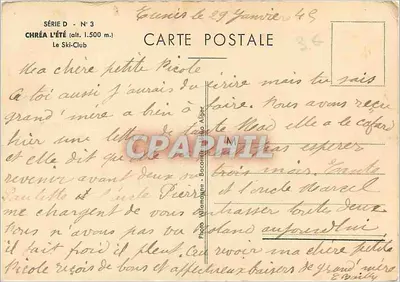 Tunis le 29 Janvier 49
SÉRIE D - N° 3
CHRÉA L'ÉTÉ (alt. 1.500 m.)
Le Ski-Club
CARTE POSTALE
36
Ma chère petite Picole
à toi aussi j'aurais du écrire mais tu sais
grand'mère a bien à faire. Nous avons reçu
hier une lettre de elle a le cafard
et elle dit que pas espérer
revenir avant deux ou trois mois. Tante
Paulette et l'oncle Pierre et l'oncle Marcel
me chargent de vous embrasser toutes deux
Nous n'avons pas vu Roland aujourd'hui
il fait froid il pleut. Au revoir ma chère petite
Picole reçois de bons et affectueux baisers de grand'mère
CPARHIL
M
Photo Villemagne - Boconnier
Alger